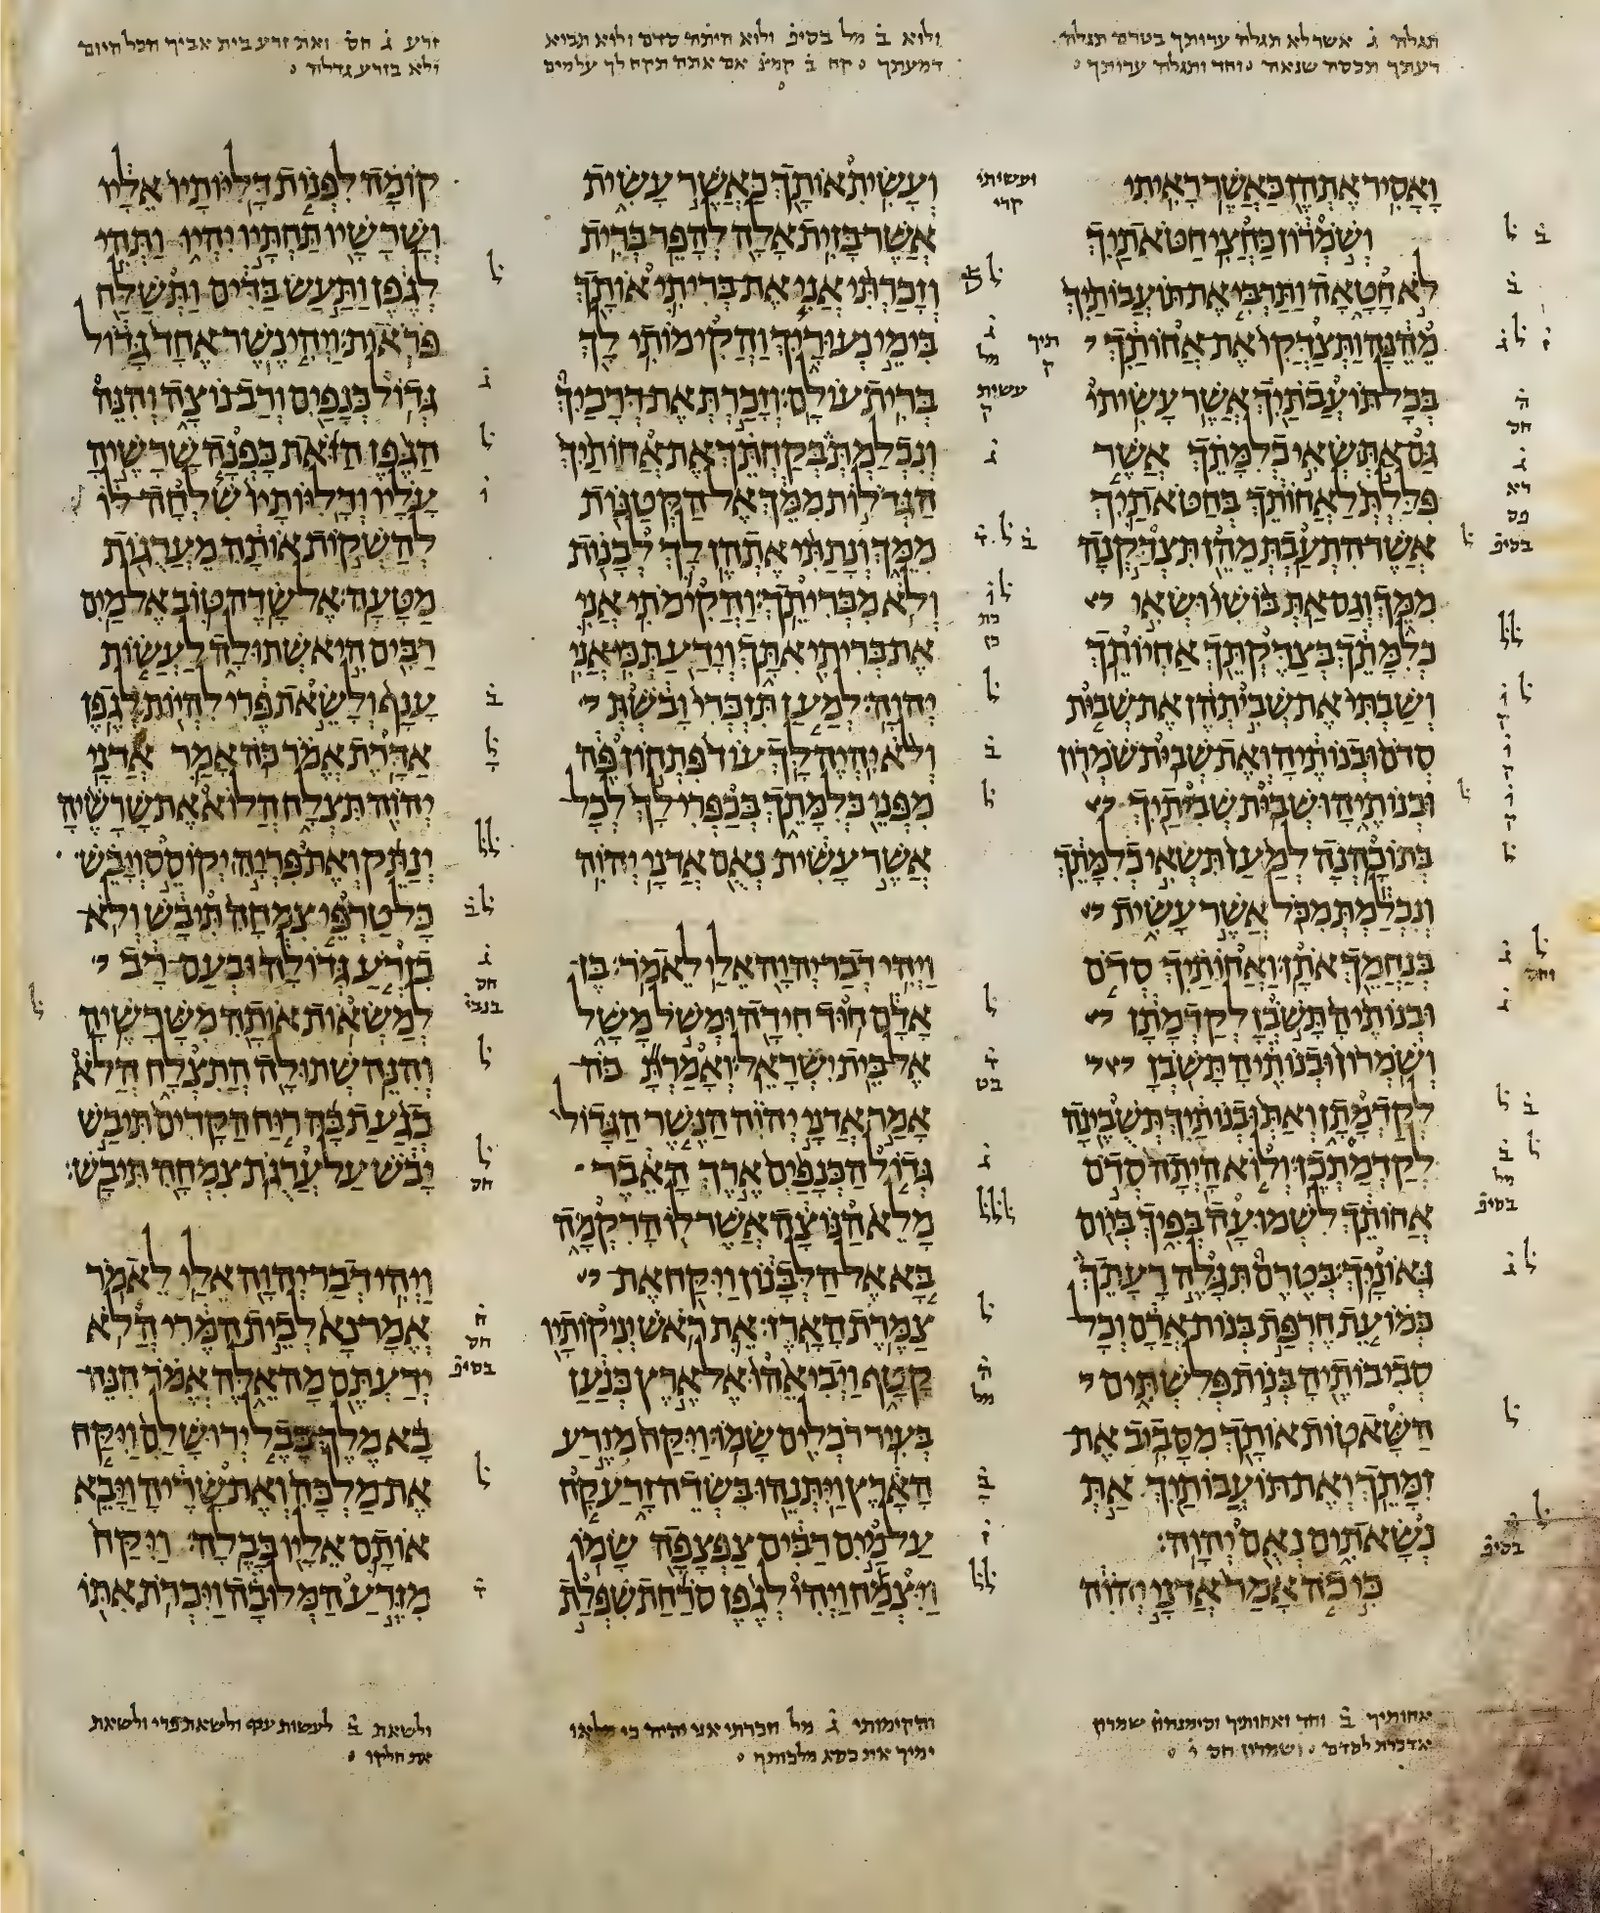 תגלה ג̇ אשר לא תגלה ערותך בטרם תגלה
רעתך תכסה שנאה וחד ותגלה ערותך
ולוא ב̇ מל בסיפ̇ ולוא היתה סדם ולוא תבוא
דמעתך קח ב̇ קמצ̇ אם אתה תקח לך עלמים
זרע ג̇ חס̇ ואת זרע בית אביך חכל היום
ולא בזרע גדלה
ואסיר אתהן כאשר ראיתי
ושמרון כחצי חטאתיך
לא חטאה ותרבי את תועבותיך
מהנה ותצדקי את אחותך
בכל תועבתיך אשר עשיתי
גם את שאי כלמתך אשר
פללת לאחותך בחטאתיך
אשר התעבת מהן תצדקנה
ממך וגם את בושי ושאי
כלמתך בצדקתך אחיותך
ושבתי את שביתהן את שבית
סדם ובנותיה ואת שבית שמרון
ובנותיה ושבית שביתיך
בתוכהנה למען תשאי כלמתך
ונכלמת מכל אשר עשית
בנחמך אתן ואחותיך סדם
ובנותיה תשבן לקדמתן
ושמרון ובנותיה תשבן
לקדמתן ואת ובנותיך תשבינה
לקדמתכן ולוא היתה סדם
אחותך לשמועה בפיך ביום
גאוניך בטרם תגלה רעתך
כמו עת חרפת בנות ארם וכל
סביבותיה בנות פלשתים
השאטות אותך מסביב את
זמתך ואת תועבותיך את
נשאתים נאם יהוה
כי כה אמר אדני יהוה
ועשית אותך כאשר עשית
אשר בזית אלה להפר ברית
וזכרתי אני את בריתי אותך
בימי נעוריך והקימותי לך
ברית עולם וזכרת את דרכיך
ונכלמת בקחתך את אחותיך
הגדלות ממך אל הקטנות
ממך ונתתי אתהן לך לבנות
ולא מבריתך והקימתי אני
את בריתי אתך וידעת כי אני
יהוה למען תזכרי ובשת
ולא יהיה לך עוד פתחון פה
מפני כלמתך בכפרי לך לכל
אשר עשית נאם אדני יהוה
ויהי דבר יהוה אלי לאמר בן
אדם חוד חידה ומשל משל
אל בית ישראל ואמרת כה
אמר אדני יהוה הנשר הגדול
גדול הכנפים ארך האבר
מלא הנוצה אשר לו הרקמה
בא אל הלבנון ויקח את
צמרת הארז את ראש יניקותיו
קטף ויביאהו אל ארץ כנען
בעיר רכלים שמו ויקח מזרע
הארץ ויתנהו בשדה זרע קח
על מים רבים צפצפה שמו
ויצמח ויהי לגפן סרחת שפלת
קומה לפנות דליותיו אליו
ושרשיו תחתיו יהיו ותהי
לגפן ותעש בדים ותשלח
פראות ויהי נשר אחד גדול
גדול כנפים ורב נוצה והנה
הגפן הזאת כפנה שרשיה
עליו ודליותיו שלחה לו
להשקות אותה מערגות
מטעה אל שדה טוב אל מים
רבים היא שתולה לעשות
ענף ולשאת פרי להיות לגפן
אדרת אמר כה אמר אדני
יהוה תצלח הלוא את שרשיה
ינתק ואת פריה יקוסס ויבש
כל טרפי צמחה תיבש ולא
בזרע גדולה ובעם רב
למשאות אותה משרשיה
והנה שתולה התצלח הלא
כגעת בה רוח הקדים תיבש
יבש על ערגת צמחה תיבש
ויהי דבר יהוה אלי לאמר
אמר נא לבית המרי הלא
ידעתם מה אלה אמר הנה
בא מלך בבל ירושלם ויקח
את מלכה ואת שריה ויבא
אותם אליו בבלה ויקח
מזרע המלוכה ויכרת אתו
אחותיך ב̇ וחד ואחותיך וסימנהון שמרון
אדכרת לסדם ושמרון חס י̇
והקימותי ג̇ מל חברתי אני יהיה כי מלאו
ימיך את כסא מלכותך
ולשאת ב̇ לעשות ענף ולשאת פרי ולשאת
את חלקו